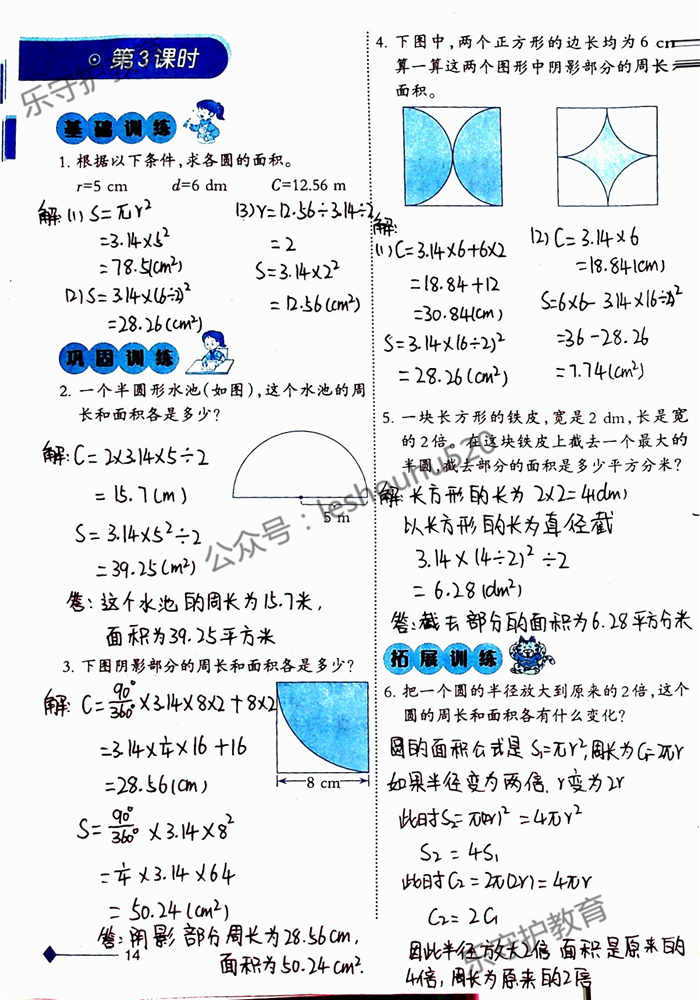 第3课时
基础训练
1. 根据以下条件，求各圆的面积。
r=5 cm d=6 dm C=12.56 m
解：(1) S=πr²
=3.14×5²
=78.5(cm²)
(2) S=3.14×(6÷2)²
=28.26(cm²)
(3) r=12.56÷3.14÷2
=2
S=3.14×2²
=12.56(cm²)
巩固训练
2. 一个半圆形水池(如图)，这个水池的周
长和面积各是多少?
解：C=2×3.14×5÷2
=15.7(cm)
S=3.14×5²÷2
=39.25(cm²)
5 m
答：这个水池的周长为15.7米，
面积为39.25平方米
3. 下图阴影部分的周长和面积各是多少?
解：C=90°/360°×3.14×8×2+8×2
=3.14×1/4×16+16
=28.56(cm)
S=90°/360°×3.14×8²
=1/4×3.14×64
=50.24(cm²)
8 cm
答：阴影部分周长为28.56cm，
面积为50.24cm².
14
4. 下图中，两个正方形的边长均为6 cm
算一算这两个图形中阴影部分的周长
面积。
解：
(1) C=3.14×6+6×2
=18.84+12
=30.84(cm)
S=3.14×(6÷2)²
=28.26(cm²)
(2) C=3.14×6
=18.84(cm)
S=6×6-3.14×(6÷2)²
=36-28.26
=7.74(cm²)
5. 一块长方形的铁皮，宽是2 dm，长是宽
的2倍。在这块铁皮上截去一个最大的
半圆，截去部分的面积是多少平方分米?
解：长方形的长为2×2=4(dm)
以长方形的长为直径截
3.14×(4÷2)²÷2
=6.28(dm²)
答：截去部分的面积为6.28平方分米
拓展训练
6. 把一个圆的半径放大到原来的2倍，这个
圆的周长和面积各有什么变化?
圆的面积公式是S₁=πr²，周长为C₁=2πr
如果半径变为两倍，r变为2r
此时S₂=π(2r)²=4πr²
S₂=4S₁
此时C₂=2π(2r)=4πr
C₂=2C₁
因此半径放大2倍 面积是原来的
4倍，周长为原来的2倍
乐守护教育
公众号：leshouhu520
乐守护教育